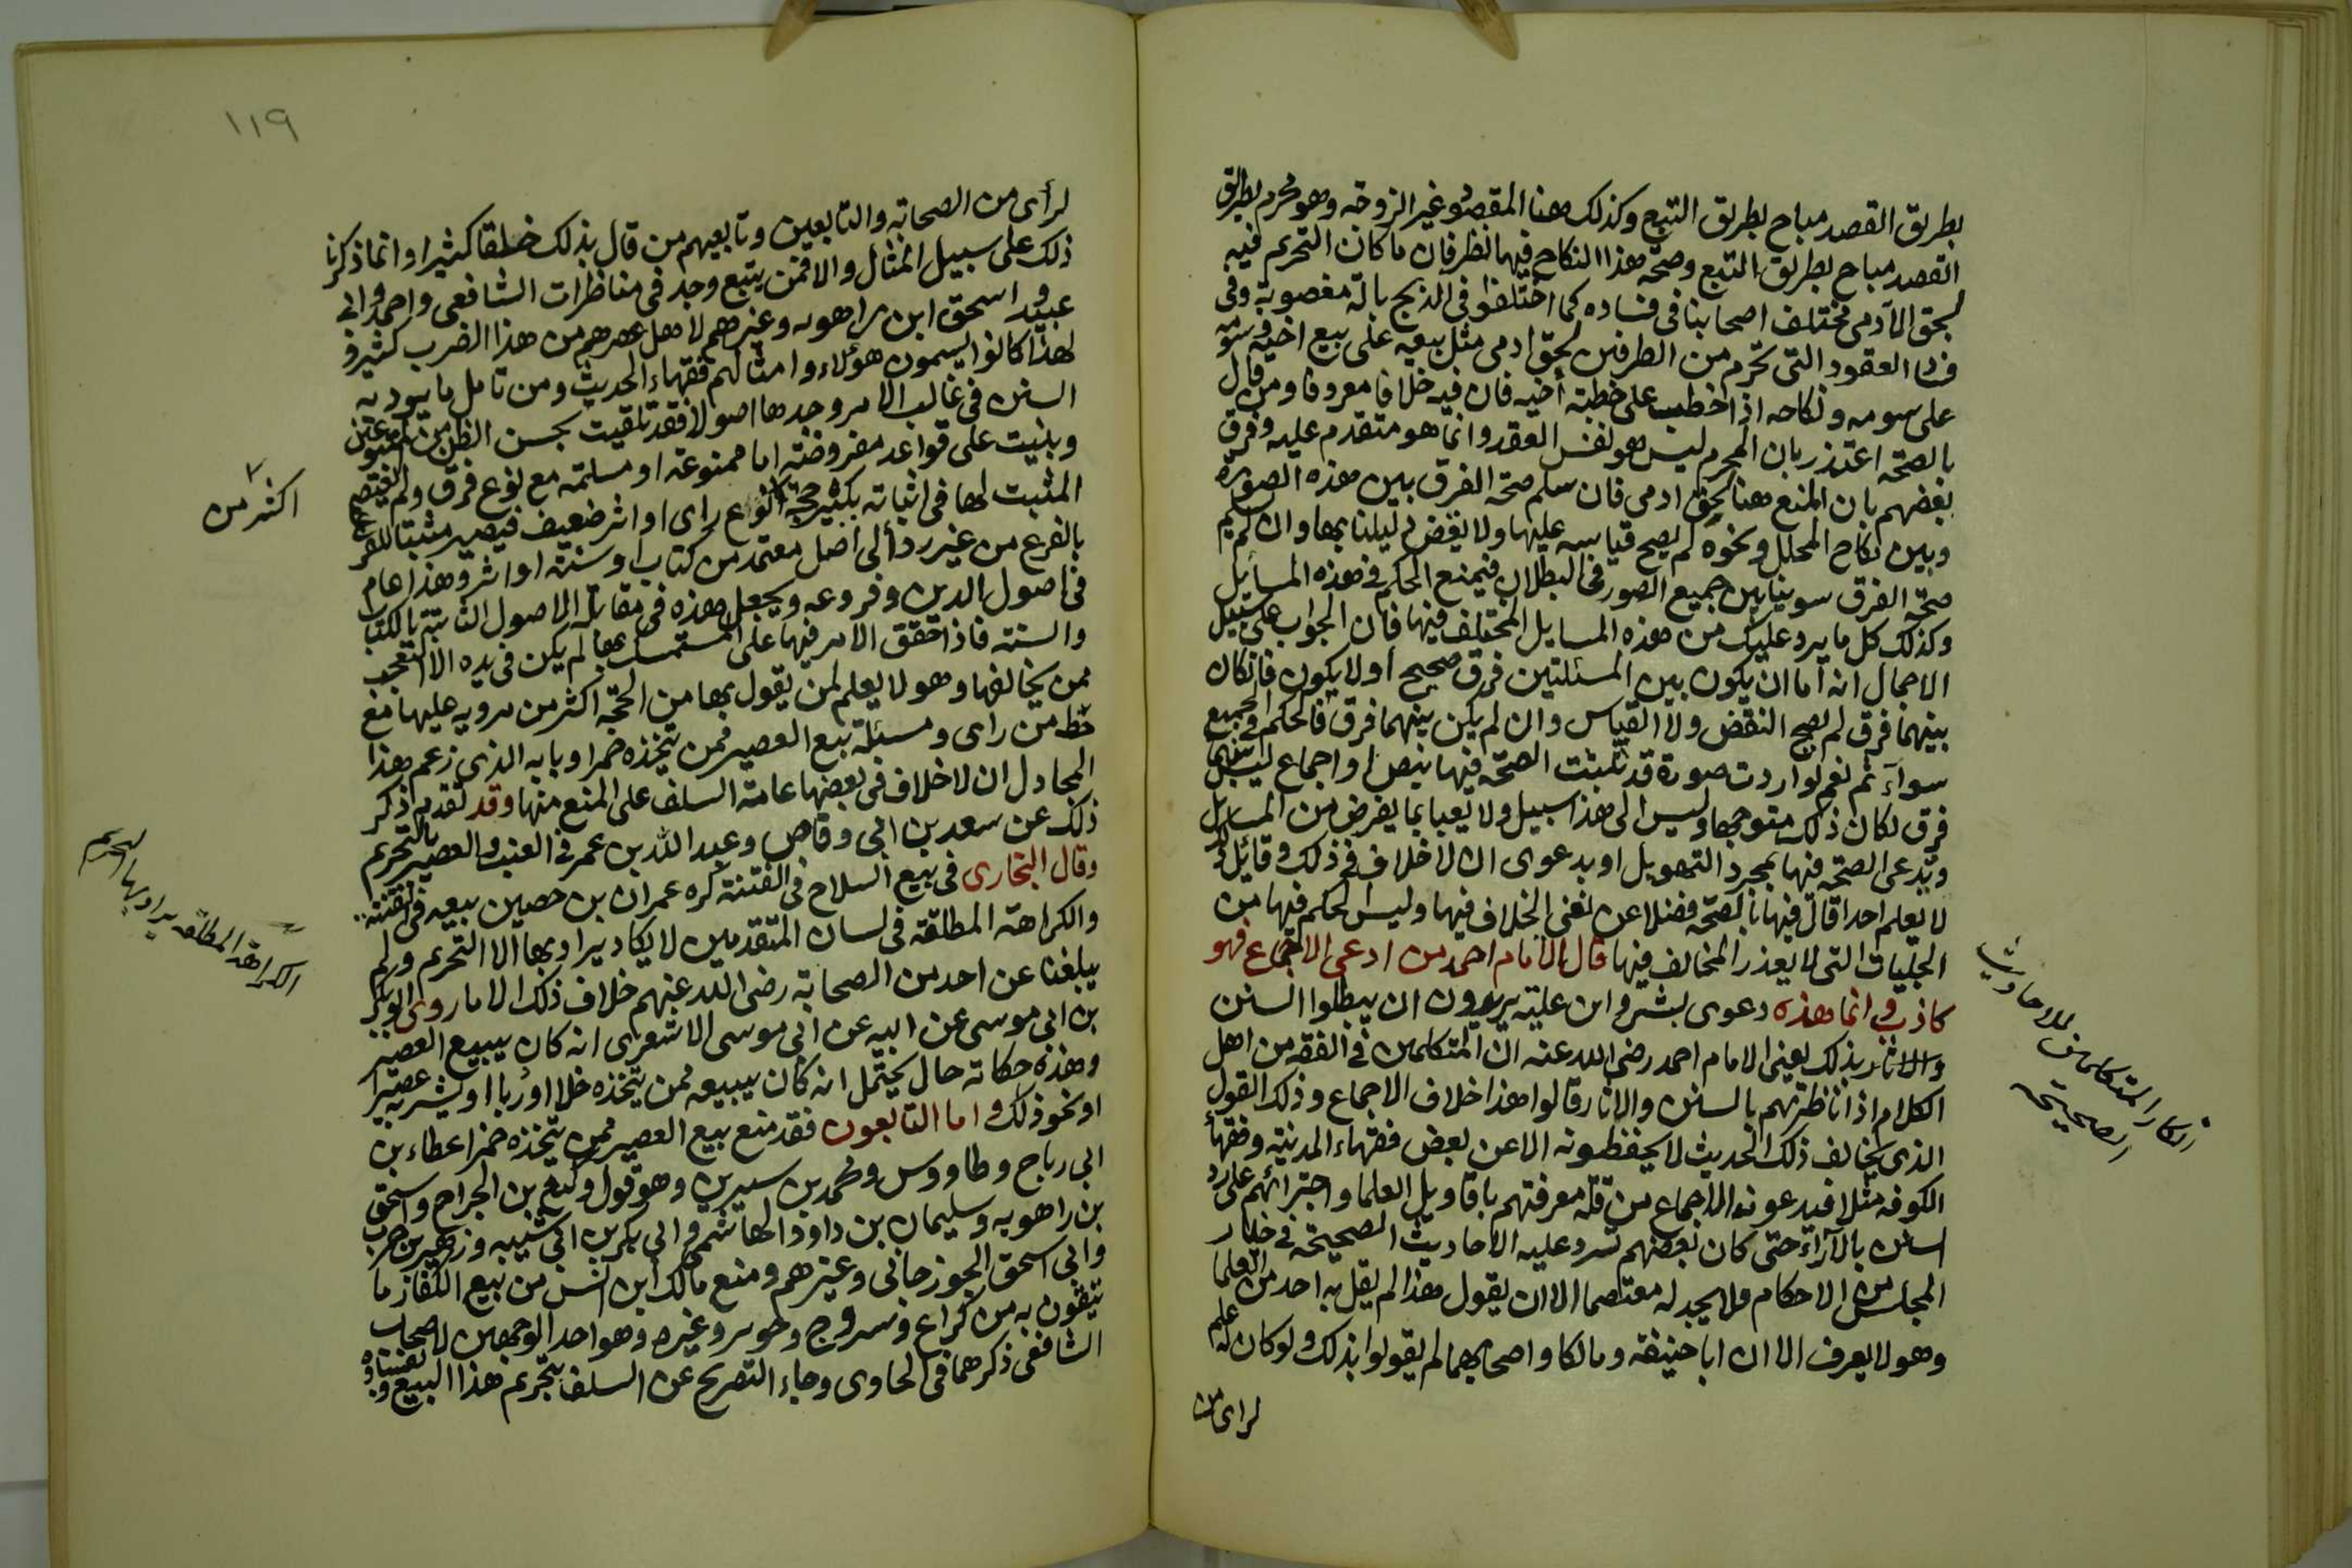 بطريق القصد مباح بطريق التبع وكذلك هنا المقصود غير الزوجة وهو محرم بطريق
القصد مباح بطريق التبع وصحة هذا النكاح فيها نظر فان ما كان التحريم فيه
لحق الآدمي مختلف اصحابنا في فساده كما اختلفوا في الذبح بالة مغصوبة وفي
العقود التي تحرم من الطرفين لحق ادمي مثل بيعه على بيع اخيه وسومه
على سومه ونكاحه اذا خطب على خطبة أخيه فان فيه خلافا معروفا ومن قال
بالصحة اعتذر بان المحرم ليس هو نفس العقد وانما هو متقدم عليه وفرق
بعضهم بان المنع هنا لحق ادمي فان سلم صحة الفرق بين هذه الصورة
وبين نكاح المحلل ونحوه لم يصح قياسه عليها ولا يقض دليلنا بها وان لم يتم
صحة الفرق سوينا بين جميع الصور في البطلان فيمنع الحكم في هذه المسائل
وكذلك كل ما يرد عليك من هذه المسايل المختلف فيها فان الجواب على سبيل
الاجمال انه اما ان يكون بين المسئلتين فرق صحيح أو لا يكون فان كان
بينهما فرق لم يصح النقض ولا القياس وان لم يكن بينهما فرق فالحكم في الجميع
سواء نعم لو اردت صورة قد ثبتت الصحة فيها بنص او اجماع ليس بينهما
فرق لكان ذلك متوجها وليس الى هذا سبيل ولا يعبا بما يفرض من المسايل
وتدعى الصحة فيها بمجرد التهويل او بدعوى ان لا خلاف في ذلك وقائل ذلك
لا يعلم احدا قال فيها بالصحة فضلا عن نفي الخلاف فيها وليس الحكم فيها من
الجليات التي لا يعذر المخالف فيها قال الامام احمد من ادعى الاجماع فهو
كاذب وانما هذه دعوى بشر وابن علية يريدون ان يبطلوا السنن
والاثار بذلك يعني الامام احمد رضي الله عنه ان المتكلمين في الفقه من اهل
الكلام اذا ناظرتهم بالسنن والاثار قالوا هذا خلاف الاجماع وذلك القول
الذي يخالف ذلك الحديث لا يحفظونه الا عن بعض فقهاء المدينة وفقهاء
الكوفة مثلا فيدعون الاجماع من قلة معرفتهم باقاويل العلما واجترائهم على رد
السنن بالآراء حتى كان بعضهم تسرد عليه الاحاديث الصحيحة في خيار
المجلس من الاحكام فلا يجد له معتصما الا ان يقول هذا لم يقل به احد من العلما
وهو لا يعرف الا ان ابا حنيفة ومالكا واصحابهما لم يقولوا بذلك ولو كان له علم
لراى من
انكار المتكلمين للاحاديث
الصحيحة
١١٩
لرأى من الصحابة والتابعين وتابعيهم من قال بذلك خلقا كثيرا وانما ذكرنا
ذلك على سبيل المثال والا فمن يتبع وجد في مناظرات الشافعي واحمد وابي
عبيد واسحق ابن راهويه وغيرهم لاهل عصرهم من هذا الضرب كثير و
لهذا كانوا يسمون هؤلاء وامثالهم فقهاء الحديث ومن تامل ما يرد به
السنن في غالب الامر وجدها اصولا قد تلقيت بحسن الظن من
وبنيت على قواعد مفروضة اما ممنوعة او مسلمة مع نوع فرق ولم يعتصم
المثبت لها في اثباته بكثير حجة نوع راى او اثر ضعيف فيصير مثبتا للفرع
بالفرع من غير رد الى اصل معتمد من كتاب او سنة او اثر وهذا عام
في اصول الدين وفروعه ويجعل هذه في مقابلة الاصول الثابتة بالكتاب
والسنة فاذا حقق الامر فيها على المستمسك بها لم يكن في يده الا التعجب
ممن يخالفها وهو لا يعلم لمن يقول بها من الحجة اكثر من مرونه عليها مع
حظ من راى ومسئلة بيع العصير ممن يتخذه خمرا وبابه الذي زعم هذا
المجادل ان لا خلاف في بعضها عامة السلف على المنع منها وقد تقدم ذكر
ذلك عن سعد بن ابي وقاص وعبد الله بن عمر في العنب والعصير بالتحريم
وقال البخاري في بيع السلاح في الفتنة كره عمران بن حصين بيعه في الفتنة
والكراهة المطلقة في لسان المتقدمين لا يكاد يراد بها الا التحريم ولم
يبلغنا عن احد من الصحابة رضي الله عنهم خلاف ذلك الا ما روى ابو بكر
بن ابي موسى عن ابيه عن ابي موسى الاشعري انه كان يبيع العصير
وهذه حكاية حال يحتمل انه كان يبيعه ممن يتخذه خلا او ربا او يشربه عصيرا
او نحو ذلك واما التابعون فقد منع بيع العصير ممن يتخذه خمرا عطاء بن
ابي رباح وطاووس ومحمد بن سيرين وهو قول وكيع بن الجراح واسحق
بن راهويه وسليمان بن داود الهاشمي وابي بكر بن ابي شيبه وزهير بن حرب
وابي اسحق الجوزجاني وغيرهم ومنع مالك ابن انس من بيع الكفار ما
يتقون به من كراع وسروج وخوص وغيره وهو احد الوجهين لاصحاب
الشافعي ذكرهما في الحاوى وجاء التصريح عن السلف بتحريم هذا البيع
اكثر من
الكراهة المطلقة يراد بها التحريم